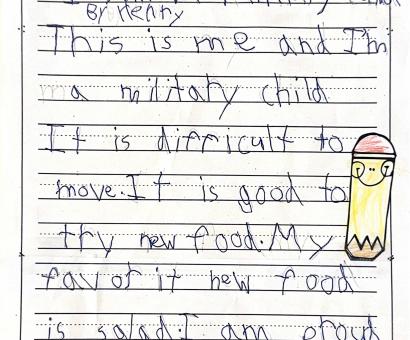 By Henry
This is me and I'm
a military child
It is difficult to
move. It is good to
try new food. My
favorit new food
is salad. I am proud